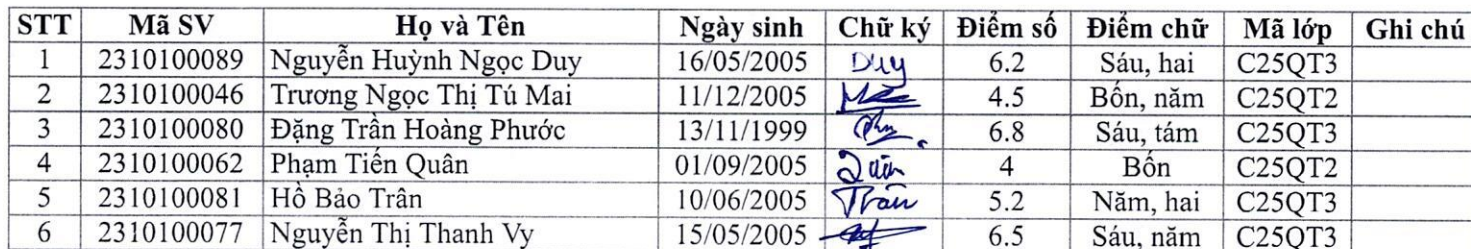 STT Mã SV Họ và Tên Ngày sinh Chữ ký Điểm số Điểm chữ Mã lớp Ghi chú
1 2310100089 Nguyễn Huỳnh Ngọc Duy 16/05/2005 Duy 6.2 Sáu, hai C25QT3
2 2310100046 Trương Ngọc Thị Tú Mai 11/12/2005 4.5 Bốn, năm C25QT2
3 2310100080 Đặng Trần Hoàng Phước 13/11/1999 6.8 Sáu, tám C25QT3
4 2310100062 Phạm Tiến Quân 01/09/2005 Quân 4 Bốn C25QT2
5 2310100081 Hồ Bảo Trân 10/06/2005 Trân 5.2 Năm, hai C25QT3
6 2310100077 Nguyễn Thị Thanh Vy 15/05/2005 6.5 Sáu, năm C25QT3